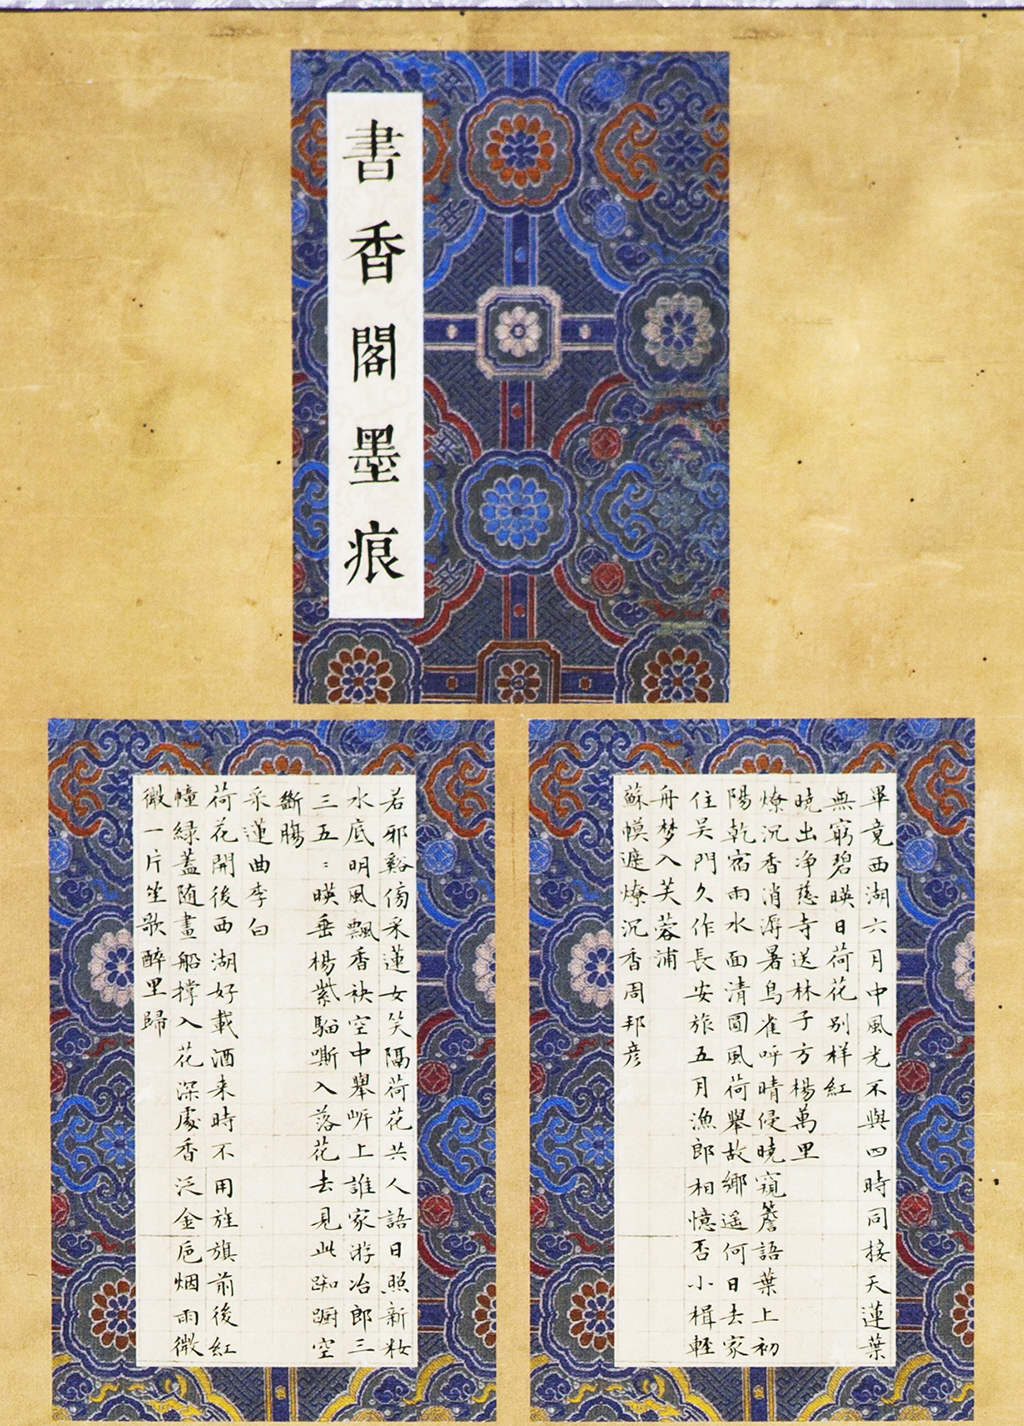 書香閣墨痕
畢竟西湖六月中風光不與四時同接天蓮葉
無窮碧暎日荷花別样紅
曉出净慈寺送林子方楊萬里
燎沉香消溽暑鳥雀呼晴侵曉窺簷語葉上初
陽乾宿雨水面清圓風荷舉故鄉遥何日去家
住吴門久作長安旅五月漁郎相憶否小楫輕
舟梦入芙蓉浦
蘇幙遮燎沉香周邦彦
若邪谿傍采蓮女笑隔荷花共人語日照新妝
水底明風飄香袂空中舉岍上誰家游冶郎三
三五〻暎垂楊紫騮嘶入落花去見此踟蹰空
斷腸
采蓮曲李白
荷花開後西湖好載酒来時不用旌旗前後紅
幢綠蓋随畫船撑入花深處香泛金卮烟雨微
微一片笙歌醉里歸